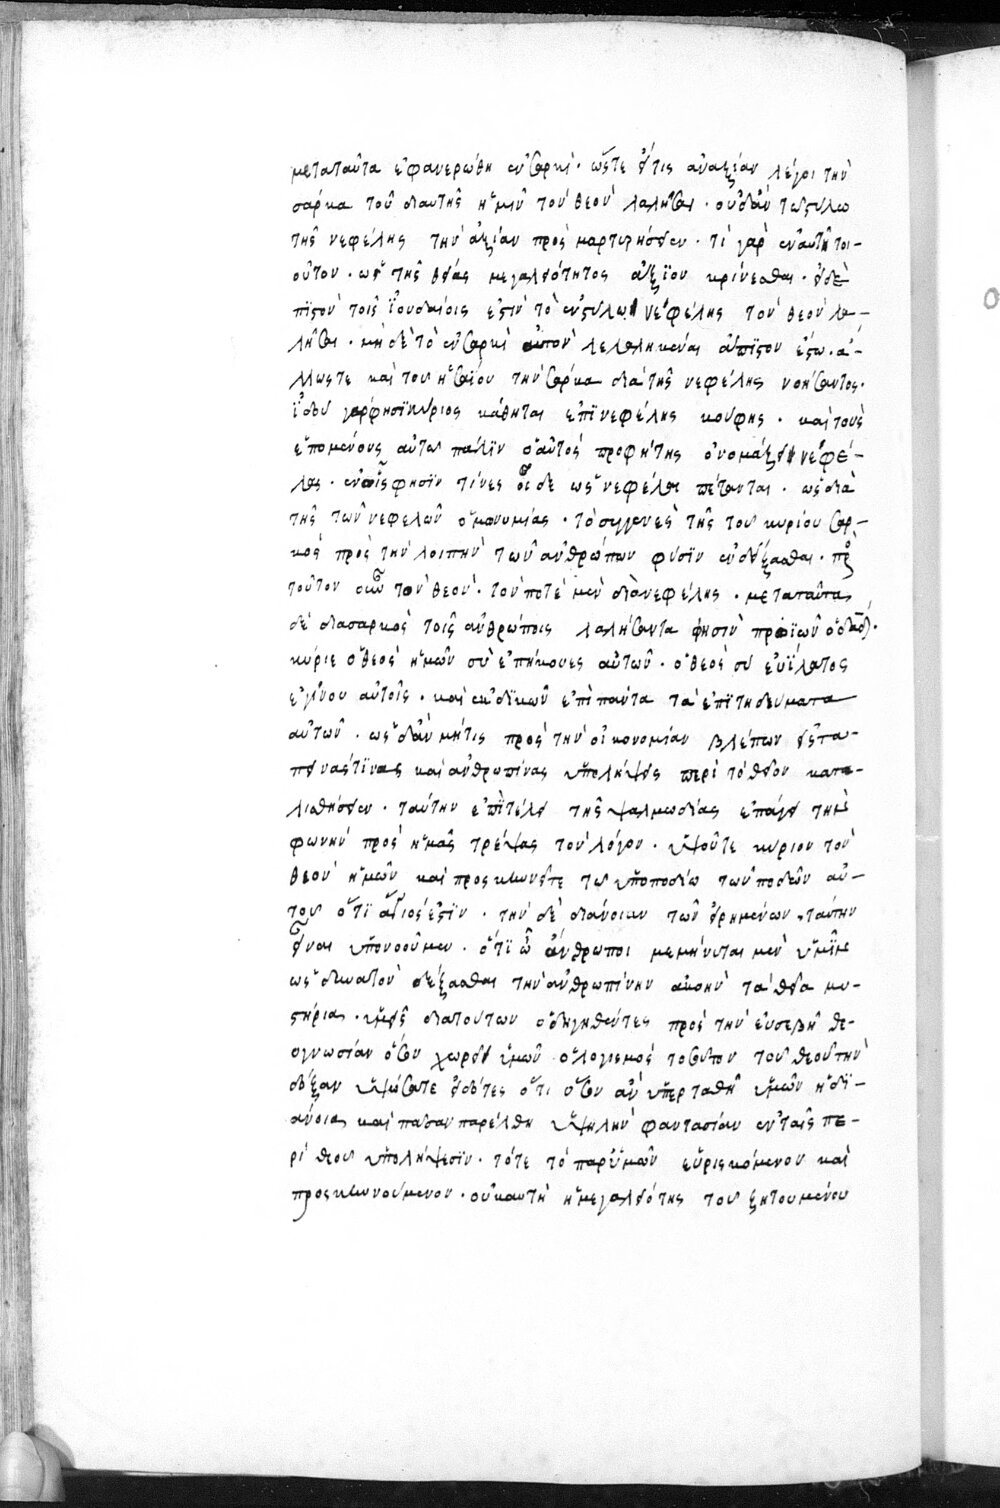 μεταταῦτα ἐφανερώθη ἐν σαρκὶ· ὥστε εἴτις ἀναξίαν λέγοι τὴν
σάρκα τοῦ διαυτῆς ἡμῖν τὸν θεὸν λαλῆσαι· οὐδὰν τῶ στύλω
τῆς νεφέλης τὴν ἀξίαν προσμαρτυρήσειεν· τί γὰρ ἐν αὐτῆ τοι-
οῦτον· ὡς τῆς θείας μεγαλειότητος ἄξιον κρίνεσθαι· εἰ δὲ
πιστὸν τοῖς ἰουδαίοις ἐστὶν τὸ ἐν στύλω νεφέλης τὸν θεὸν λα-
λῆσαι· μὴ δὲ τὸ ἐν σαρκὶ αὐτὸν λελαληκέναι ἄπιστον ἔστω· ἄ-
λλωστε καὶ τοῦ ἡσαΐου τὴν σάρκα διὰ τῆς νεφέλης νοήσαντος·
ἰδοὺ γάρ φησι κύριος κάθηται ἐπὶ νεφέλης κούφης· καὶ τοὺς
ἑπομένους αὐτῶ πάλιν ὁ αὐτὸς προφήτης ὀνομάζει νεφέ-
λας· ἐν οἷς φησὶν τίνες οἵδε ὡς νεφέλαι πέτανται· ὡς διὰ
τῆς τῶν νεφελῶν ὁμωνυμίας· τὸ συγγενὲς τῆς τοῦ κυρίου σαρ-
κὸς πρὸς τὴν λοιπὴν τῶν ἀνθρώπων φύσιν ἐνδείξασθαι· πρὸς
τοῦτον οὖν τὸν θεὸν· τὸν ποτὲ μὲν διὰ νεφέλης· μεταταῦτα
δὲ διὰ σαρκὸς τοῖς ἀνθρώποις λαλήσαντα φησὶν προϊὼν ὁ δαδ·
κύριε ὁ θεὸς ἡμῶν σὺ ἐπήκουες αὐτῶν· ὁ θεὸς σὺ εὐίλατος
ἐγίνου αὐτοῖς· καὶ ἐκδικῶν ἐπὶ πάντα τὰ ἐπιτηδεύματα
αὐτῶν· ὡς δὰν μήτις πρὸς τὴν οἰκονομίαν βλέπων εἰς τα-
πεινάς τινας καὶ ἀνθρωπίνας ὑπολήψεις περὶ τὸ θεῖον κατο-
λισθήσειεν· ταύτην ἐπὶ τέλει τῆς ψαλμωδίας ἐπάγει τὴν
φωνὴν πρὸς ἡμᾶς τρέψας τὸν λόγον· ὑψοῦτε κύριον τὸν
θεὸν ἡμῶν καὶ προσκυνεῖτε τῶ ὑποποδίω τῶν ποδῶν αὐ-
τοῦ ὅτι ἅγιός ἐστιν· τὴν δὲ διάνοιαν τῶν εἰρημένων ταύτην
εἶναι ὑπονοοῦμεν· ὅτι ὦ ἄνθρωποι μεμήνυται μὲν ὑμῖν
ὡς δυνατὸν δέξασθαι τὴν ἀνθρωπίνην ἀκοὴν τὰ θεῖα μυ-
στήρια· ὑμεῖς διατούτων ὁδηγηθέντες πρὸς τὴν εὐσεβῆ θε-
ογνωσίαν ὅσον χωρεῖ ὑμῶν ὁ λογισμὸς τοσοῦτον τοῦ θεοῦ τὴν
δόξαν ὑψώσατε εἰδότες ὅτι ὅσον ἂν ὑπερταθῆ ὑμῶν ἡ δι-
άνοια καὶ πᾶσαν παρέλθη ὑψηλὴν φαντασίαν ἐν ταῖς πε-
ρὶ θεοῦ ὑπολήψεσιν· τότε τὸ παρυμῶν εὑρισκόμενον καὶ
προσκυνούμενον· οὐκ αὐτὴ ἡ μεγαλειότης τοῦ ζητουμένου